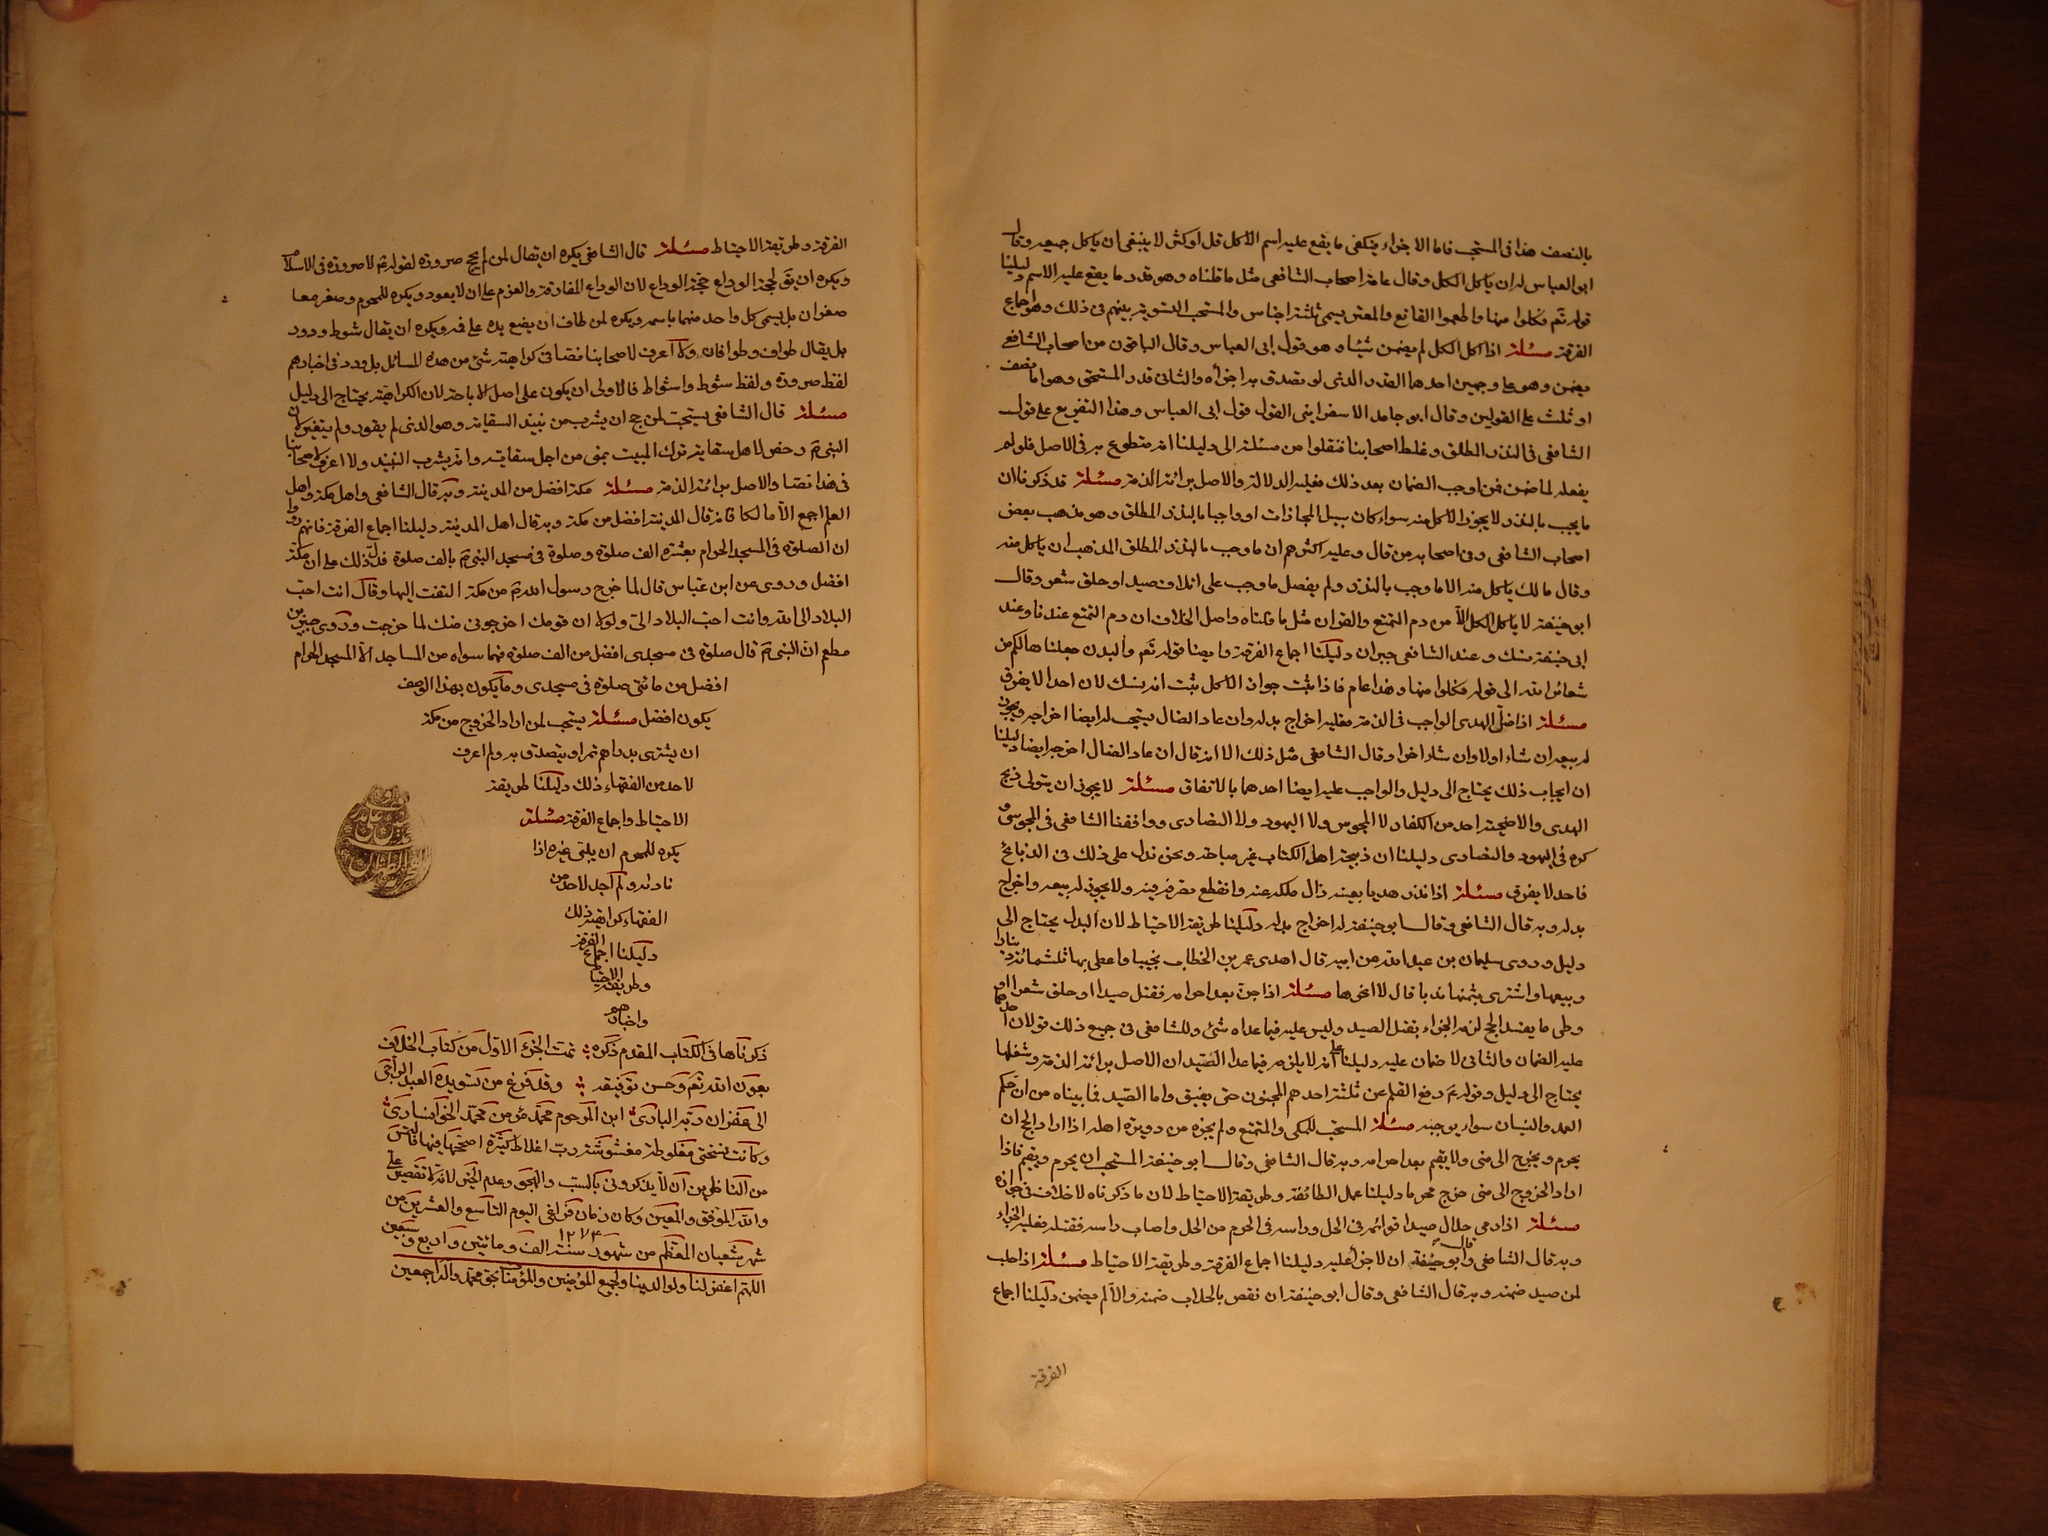 بالنصف هذا فى المستحب فاما الاجزاء فيكفى ما يقع عليه اسم الاكل قل او كثر لا ينبغى ان ياكل جميعه وقال
ابو العباس له ان ياكل الكل وقال عامة اصحاب الشافعى مثل ما قلناه وهو قدر ما يقع عليه الاسم دليلنا
قوله تعم فكلوا منها واطعموا القانع والمعتر يسمى ثلثة اجناس والمستحب التسوية بينهم فى ذلك وهو اجماع
الفرقة مسئلة اذا اكل الكل لم يضمن شيئا وهو قول ابى العباس وقال الباقون من اصحاب الشافعى
يضمن وهو على وجهين احدهما القدر الذى لو تصدق به اجزأه والثانى قدر المستحق وهو اما نصف
او ثلث على القولين وقال ابو حامد الاسفراينى القول قول ابى العباس وهذا التفريع على قول
الشافعى فى النذر المطلق وغلط اصحابنا فنقلوا من مسئلة الى دليلنا انه متطوع به فى الاصل فلو لم
يفعله لما ضمن فمن اوجب الضمان بعد ذلك فعليه الدلالة والاصل برائة الذمة مسئلة قد ذكرنا ان
ما يجب بالنذر لا يجوز الاكل منه سواء كان سبيل المجازات او واجبا بالنذر المطلق وهو مذهب بعض
اصحاب الشافعى وفى اصحابه من قال وعليه اكثرهم ان ما وجب بالنذر المطلق المذهب ان ياكل منه
وقال مالك ياكل منه الا ما وجب بالنذر ولم يفصل ما وجب على اتلاف صيد او حلق شعر وقال
ابو حنيفة لا ياكل الكل الا من دم التمتع والقران مثل ما قلناه واصل الخلاف ان دم التمتع عندنا وعند
ابى حنيفة نسك وعند الشافعى جبران دليلنا اجماع الفرقة وايضا قوله تعم والبدن جعلناها لكم من
شعائر الله الى قوله فكلوا منها وهذا عام فاذا ثبت جواز الاكل ثبت انه نسك لان احدا لا يفرق
مسئلة اذا ضل الهدى الواجب فى الذمة فعليه اخراج بدله وان عاد الضال يستحب له ايضا اخراجه ويجوز
له بيعه ان شاء اولا وان شاء اخرا وقال الشافعى مثل ذلك الا انه قال ان عاد الضال اخرجه ايضا دليلنا
ان ايجاب ذلك يحتاج الى دليل والواجب عليه ايضا احدهما بالاتفاق مسئلة لا يجوز ان يتولى ذبح
الهدى والاضحية احد من الكفار لا المجوس ولا اليهود ولا النصارى ووافقنا الشافعى فى المجوسى و
كره فى اليهود والنصارى دليلنا ان ذبيحة اهل الكتاب غير مباحة ونحن ندل على ذلك فى الذبائح
فاحد لا يفرق مسئلة اذا نذر هديا بعينه زال ملكه عنه وانقطع تصرفه فيه ولا يجوز له بيعه واخراج
بدله وبه قال الشافعى وقال ابو حنيفة له اخراج بدله دليلنا طريقة الاحتياط لان البدل يحتاج الى
دليل وروى سليمان بن عبد الله من ابيه قال اهدى عمر بن الخطاب نجيبا واعطى بها ثلثمائة دينارا
وبيعها واشترى بثمنها بدنا قال لا انحرها مسئلة اذا جن بعد احرامه فقتل صيدا او حلق شعرا او
وطى ما يفسد الحج لزمه الجزاء بقتل الصيد وليس عليه فيما عداه شئ وللشافعى فى جميع ذلك قولان احدهما
عليه الضمان والثانى لا ضمان عليه دليلنا على انه لا يلزمه فيما عدا الصيد ان الاصل برائة الذمة وشغلها
يحتاج الى دليل وقوله ع رفع القلم عن ثلثة احدهم المجنون حتى يفيق واما الصيد فما بيناه من ان حكم
العمد والنسيان سواء يوجبه مسئلة المستحب للمكى والمتمتع ولم يجزه من دويرة اهله اذا اراد الحج ان
يحرم ويخرج الى منى ولا يقيم بعد احرامه وبه قال الشافعى وقال ابو حنيفة المستحب ان يحرم ويقيم فاذا
اراد الخروج الى منى خرج محرما دليلنا عمل الطائفة وطريقة الاحتياط لان ما ذكرناه لا خلاف فى جوازه
مسئلة اذا رمى حلال صيدا قوائمه فى الحل وراسه فى الحرم من الحل واصاب راسه فقتله فعليه الجزاء
وبه قال الشافعى وابو حنيفة قال ان لا جزأ عليه دليلنا اجماع الفرقة وطريقة الاحتياط مسئلة اذا حلب
لبن صيد ضمنه وبه قال الشافعى وقال ابو حنيفة ان نقص بالحلاب ضمنه والا لم يضمن دليلنا اجماع
الفرقة
الفرقة وطريقة الاحتياط مسئلة قال الشافعى يكره ان يقال لمن لم يحج صرورة لقوله ع لا صرورة فى الاسلام
ويكره ان يق لحجة الوداع حجة الوداع لان الوداع المفارقة والعزم على ان لا يعود ويكره للمحرم وصفر معا
صفران بل يسمى كل واحد منهما باسمه ويكره لمن طاف ان يضع يده على فيه ويكره ان يقال شوط ودور
بل يقال طواف وطوافان ولا اعرف لاصحابنا نصا فى كراهية شئ من هذه المسائل بل ورد فى اخبارهم
لفظ صرورة ولفظ شوط واشواط فالاولى ان يكون على اصل الاباحة لان الكراهية يحتاج الى دليل
مسئلة قال الشافعى يستحب لمن حج ان يشرب من نبيذ السقاية وهو الذى لم يفور ولم يتغير لان
النبى ص رخص لاهل سقاية ترك المبيت بمنى من اجل سقايته وانه يشرب النبيذ ولا اعرف لاصحابنا
فى هذا نصا والاصل برائة الذمة مسئلة مكة افضل من المدينة وبه قال الشافعى واهل مكة واهل
العلم اجمع الا مالكا فانه قال المدينة افضل من مكة وبه قال اهل المدينة دليلنا اجماع الفرقة فانهم رووا
ان الصلوة فى المسجد الحرام بعشرة الف صلوة وصلوة فى مسجد النبى ص بالف صلوة فدل ذلك على ان مكة
افضل وروى عن ابن عباس قال لما خرج رسول الله ص من مكة التفت اليها وقال انت احب
البلاد الى الله وانت احب البلاد الى ولولا ان قومك اخرجونى منك لما خرجت وروى جبير بن
مطعم ان النبى ص قال صلوة فى مسجدى افضل من الف صلوة فيما سواه من المساجد الا المسجد الحرام
افضل من مائتى صلوة فى مسجدى وما يكون بهذا الوصف
يكون افضل مسئلة يستحب لمن اراد الخروج من مكة
ان يشترى بدراهم تمرا ويتصدق به ولم اعرف
لاحد من الفقهاء ذلك دليلنا طريقة
الاحتياط واجماع الفرقة مسئلة
يكره للمحرم ان يلبى غيره اذا
ناداه ولم اجد لاحد من
الفقهاء كراهية ذلك
دليلنا اجماع الفرقة
وطريقة الاحتياط
واخبارهم
ذكرناها فى الكتاب المقدم ذكره تمت الجزء الاول من كتاب الخلاف
بعون الله تعم وحسن توفيقه وقد فرغ من تسويده العبد الراجى
الى غفران ربه البارى ابن المرحوم محمد مؤمن محمد الخوانسارى
وكانت نسختى مغلوطة مغشوشة رب اغلاط كثيرة اصححها فيها فالتمس
من الناظرين ان لا يذكرونى بالسب والهجو وعدم الخير لانه لا تقصير على
والله الموفق والمعين وكان زمان فراغى اليوم التاسع والعشرين من
شهر شعبان المعظم من شهور سنة ١٢٧٤ الف ومائتين واربع وسبعين
اللهم اغفر لنا ولوالدينا ولجميع المؤمنين والمؤمنات بحق محمد واله اجمعين